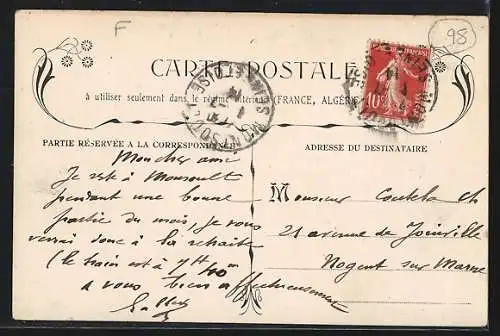 F
98
CARTE POSTALE
à utiliser seulement dans le régime intérieur (FRANCE, ALGÉRIE
PARTIE RÉSERVÉE A LA CORRESPONDANCE
ADRESSE DU DESTINATAIRE
10c
Mon cher ami
Je reste à Monsoult
pendant une bonne
partie du mois, je vous
verrai donc à la retraite
(le train est à 7H40m
à vous bien affectueusement
Monsieur
21 avenue de Joinville
Nogent sur Marne